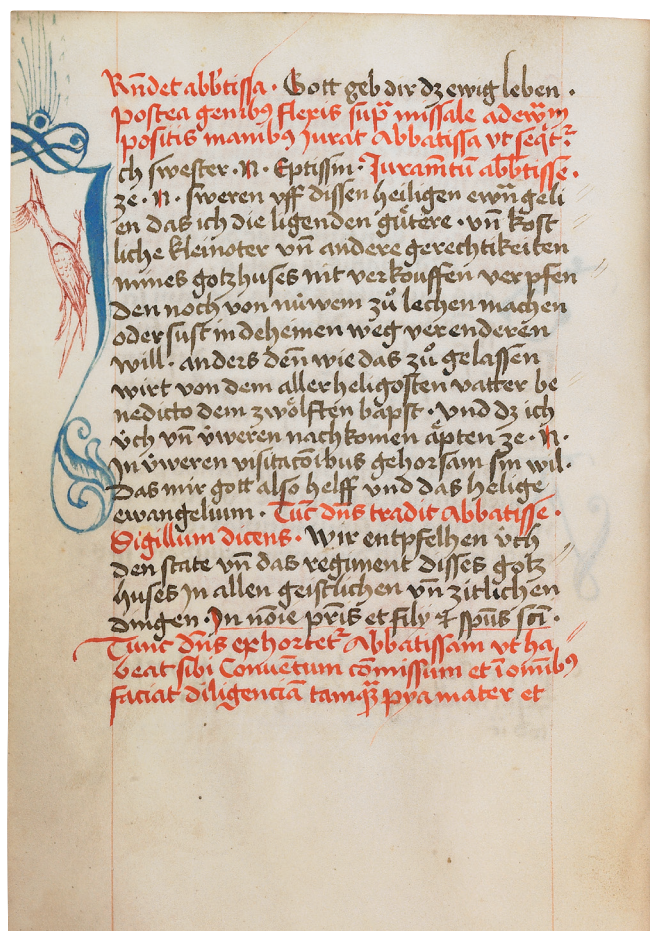 Rñdet abb̄tissa · Gott geb dir dz ewig leben ·
Postea genibꝰ flexis sup̄ missale ad ew̄m
positis manibꝰ Jurat Abbatissa vt seqt̄ᷣ
Jch swester · N · Eptissin · Juramt̄um abb̄tisse ·
ze · N · sweren vff dissen heiligen ewn̄geli
en das ich die ligenden gütere · vn̄ kost
liche kleinoter vn̄ andere gerechtikeiten
mines gotzhuses nit verkouffen verpfen
den noch von nüwem zů lechen machen
oder sust in deheinen weg verenderen
will · anders den̄ wie das zů gelassen
wirt von dem aller heligosten vatter be
nedicto dem zwölften bapst · Vnd dz ich
v̈ch vn̄ v̈weren nachkomen äpten ze · N ·
Jn v̈weren visitac̄oibus gehorsam sin wil ·
Das mir gott also helff vnd das helige
ewangelium · Tūc dn̄s tradit Abbatisse ·
Sigillum dicens · Wir entpfelhen v̈ch
den state vn̄ das regiment disses gotz
huses Jn allen geistlichen vn̄ zitlichen
dingen · Jn noīe pr̄is et fily ⁊ sp̄us sc̄i ·
Tunc dn̄s exhortetᷣ Abbatissam vt ha
beat sibi Conuentum cōmissum et ī om̄ibꝰ
faciat diligenciā tamqꝫ pya mater et